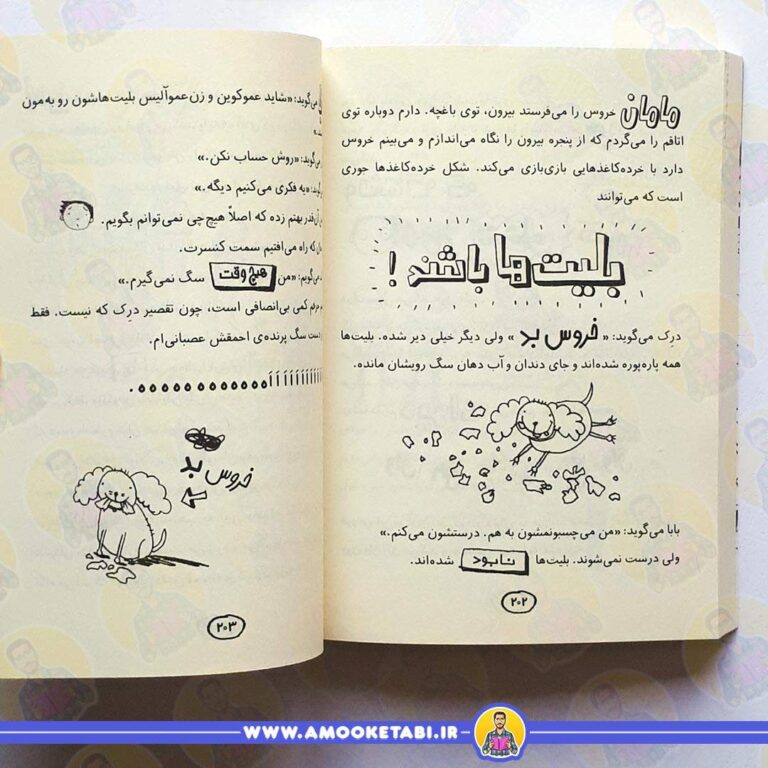 مامان خروس را می‌فرستد بیرون، توی باغچه. دارم دوباره توی
اتاقم را می‌گردم که از پنجره بیرون را نگاه می‌اندازم و می‌بینم خروس
دارد با خرده‌کاغذهایی بازی‌بازی می‌کند. شکل خرده‌کاغذها جوری
است که می‌توانند
بلیت‌ها باشند!
درک می‌گوید: «خروس بد» ولی دیگر خیلی دیر شده. بلیت‌ها
همه پاره‌پوره شده‌اند و جای دندان و آب دهان سگ رویشان مانده.
بابا می‌گوید: «من می‌چسبونمشون به هم. درستشون می‌کنم.»
ولی درست نمی‌شوند. بلیت‌ها نابود شده‌اند.
۲۰۲
می‌گوید: «شاید عموکوین و زن‌عموآلیس بلیت‌هاشون رو به‌مون
می‌گوید: «روش حساب نکن.»
«یه فکری می‌کنیم دیگه.»
بهتم زده که اصلاً هیچ‌چی نمی‌توانم بگویم.
که راه می‌افتیم سمت کنسرت.
می‌گویم: «من هیچ‌وقت سگ نمی‌گیرم.»
حرفم کمی بی‌انصافی است، چون تقصیر درک که نیست. فقط
دست سگ پرنده‌ی احمقش عصبانی‌ام.
خروس بد
۲۰۳
WWW.AMOOKETABI.IR